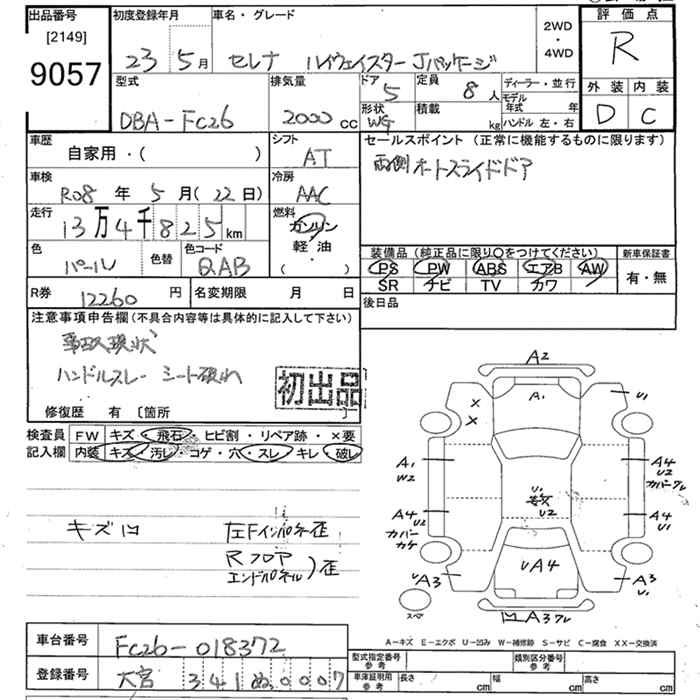 出品番号
[2149]
9057
初度登録年月
車名・グレード
23 5月
セレナ ハイウェイスター Jパッケージ
2WD
・
4WD
評価点
R
外装 内装
D C
型式
DBA-FC26
排気量
2000 cc
ドア
5
定員
8人
形状
WG
積載
kg
ディーラー・並行
モデル年式 年
ハンドル 左・右
車歴
自家用・( )
シフト
AT
セールスポイント (正常に機能するものに限ります)
両側オートスライドドア
車検
R08年 5月(22日)
冷房
AAC
走行
13万4千825km
燃料
ガソリン
軽油
( )
色
パール
色替
色コード
QAB
装備品 (純正品に限り〇をつけてください)
PS PW ABS エアB AW
SR ナビ TV カワ
新車保証書
有・無
R券 12260円
名変期限 月 日
後日品
注意事項申告欄 (不具合内容等は具体的に記入して下さい)
事故現状
ハンドルスレ シート破れ
初出品
修復歴 有 〔箇所 〕
検査員
記入欄
FW キズ・飛石・ヒビ割・リペア跡・×要
内装 キズ・汚レ・コゲ・穴・スレ・キレ・破レ
キズ凹
左Fインパネ歪
Rフロア
エンドパネル)歪
A2
A1
U1
X
X
A1
W2
A4
U2
カバーワレ
U1
U2
A4
U2
カバー
カケ
A4
U1
UA4
UA3
A3
U1
スペア
凹A3ワレ
A-キズ E-エクボ U-凹み W-補修跡 S-サビ C-腐食 XX-交換済
車台番号
FC26-018372
登録番号
大宮 341 ぬ 0007
型式指定番号
参考
類別区分番号
参考
車庫証明用
参考
長さ cm
幅 cm
高さ cm